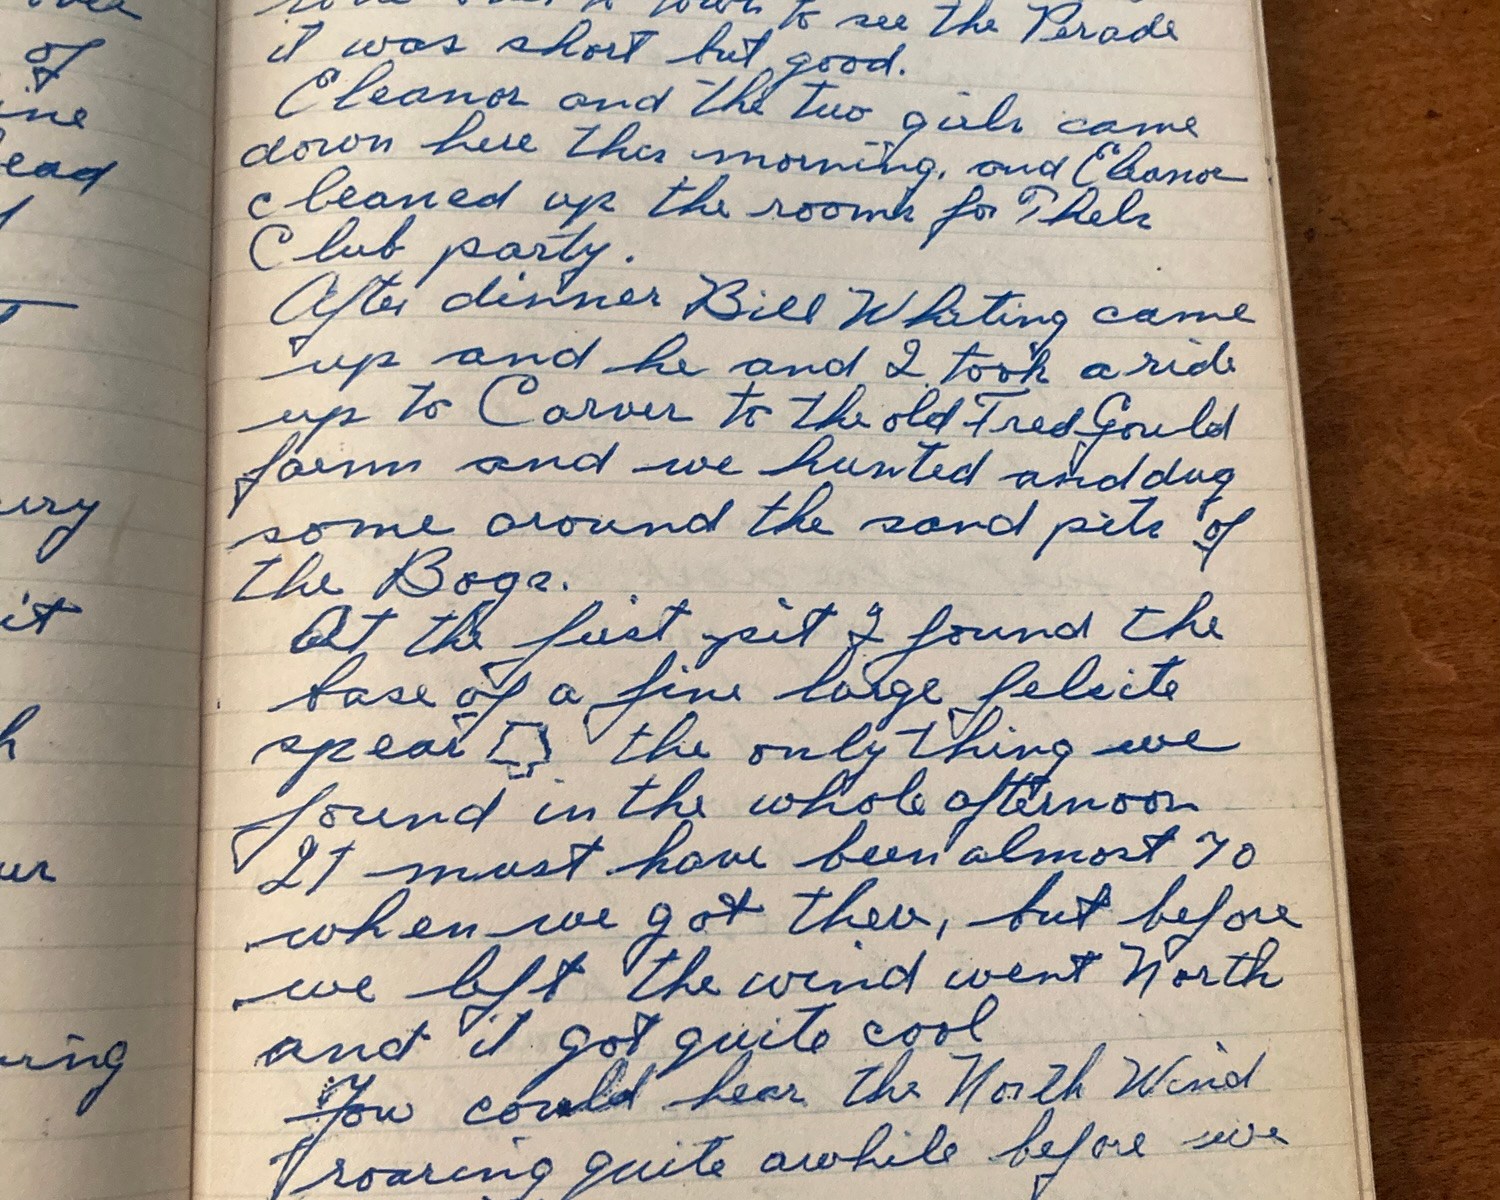 of
ine
ead
ery
it
h
ur
ring
to see the Perade
it was short but good.
Eleanor and the two girls came
down here this morning, and Eleanor
cleaned up the rooms for Thels
Club party.
After dinner Bill Whiting came
up and he and I took a ride
up to Carver to the old Fred Gould
farm and we hunted and dug
some around the sand pits of
the Bogs.
At the first pit I found the
base of a fine large felsite
spear the only thing we
found in the whole afternoon
It must have been almost 70
when we got there, but before
we left the wind went North
and it got quite cool
You could hear the North Wind
roaring quite awhile before we